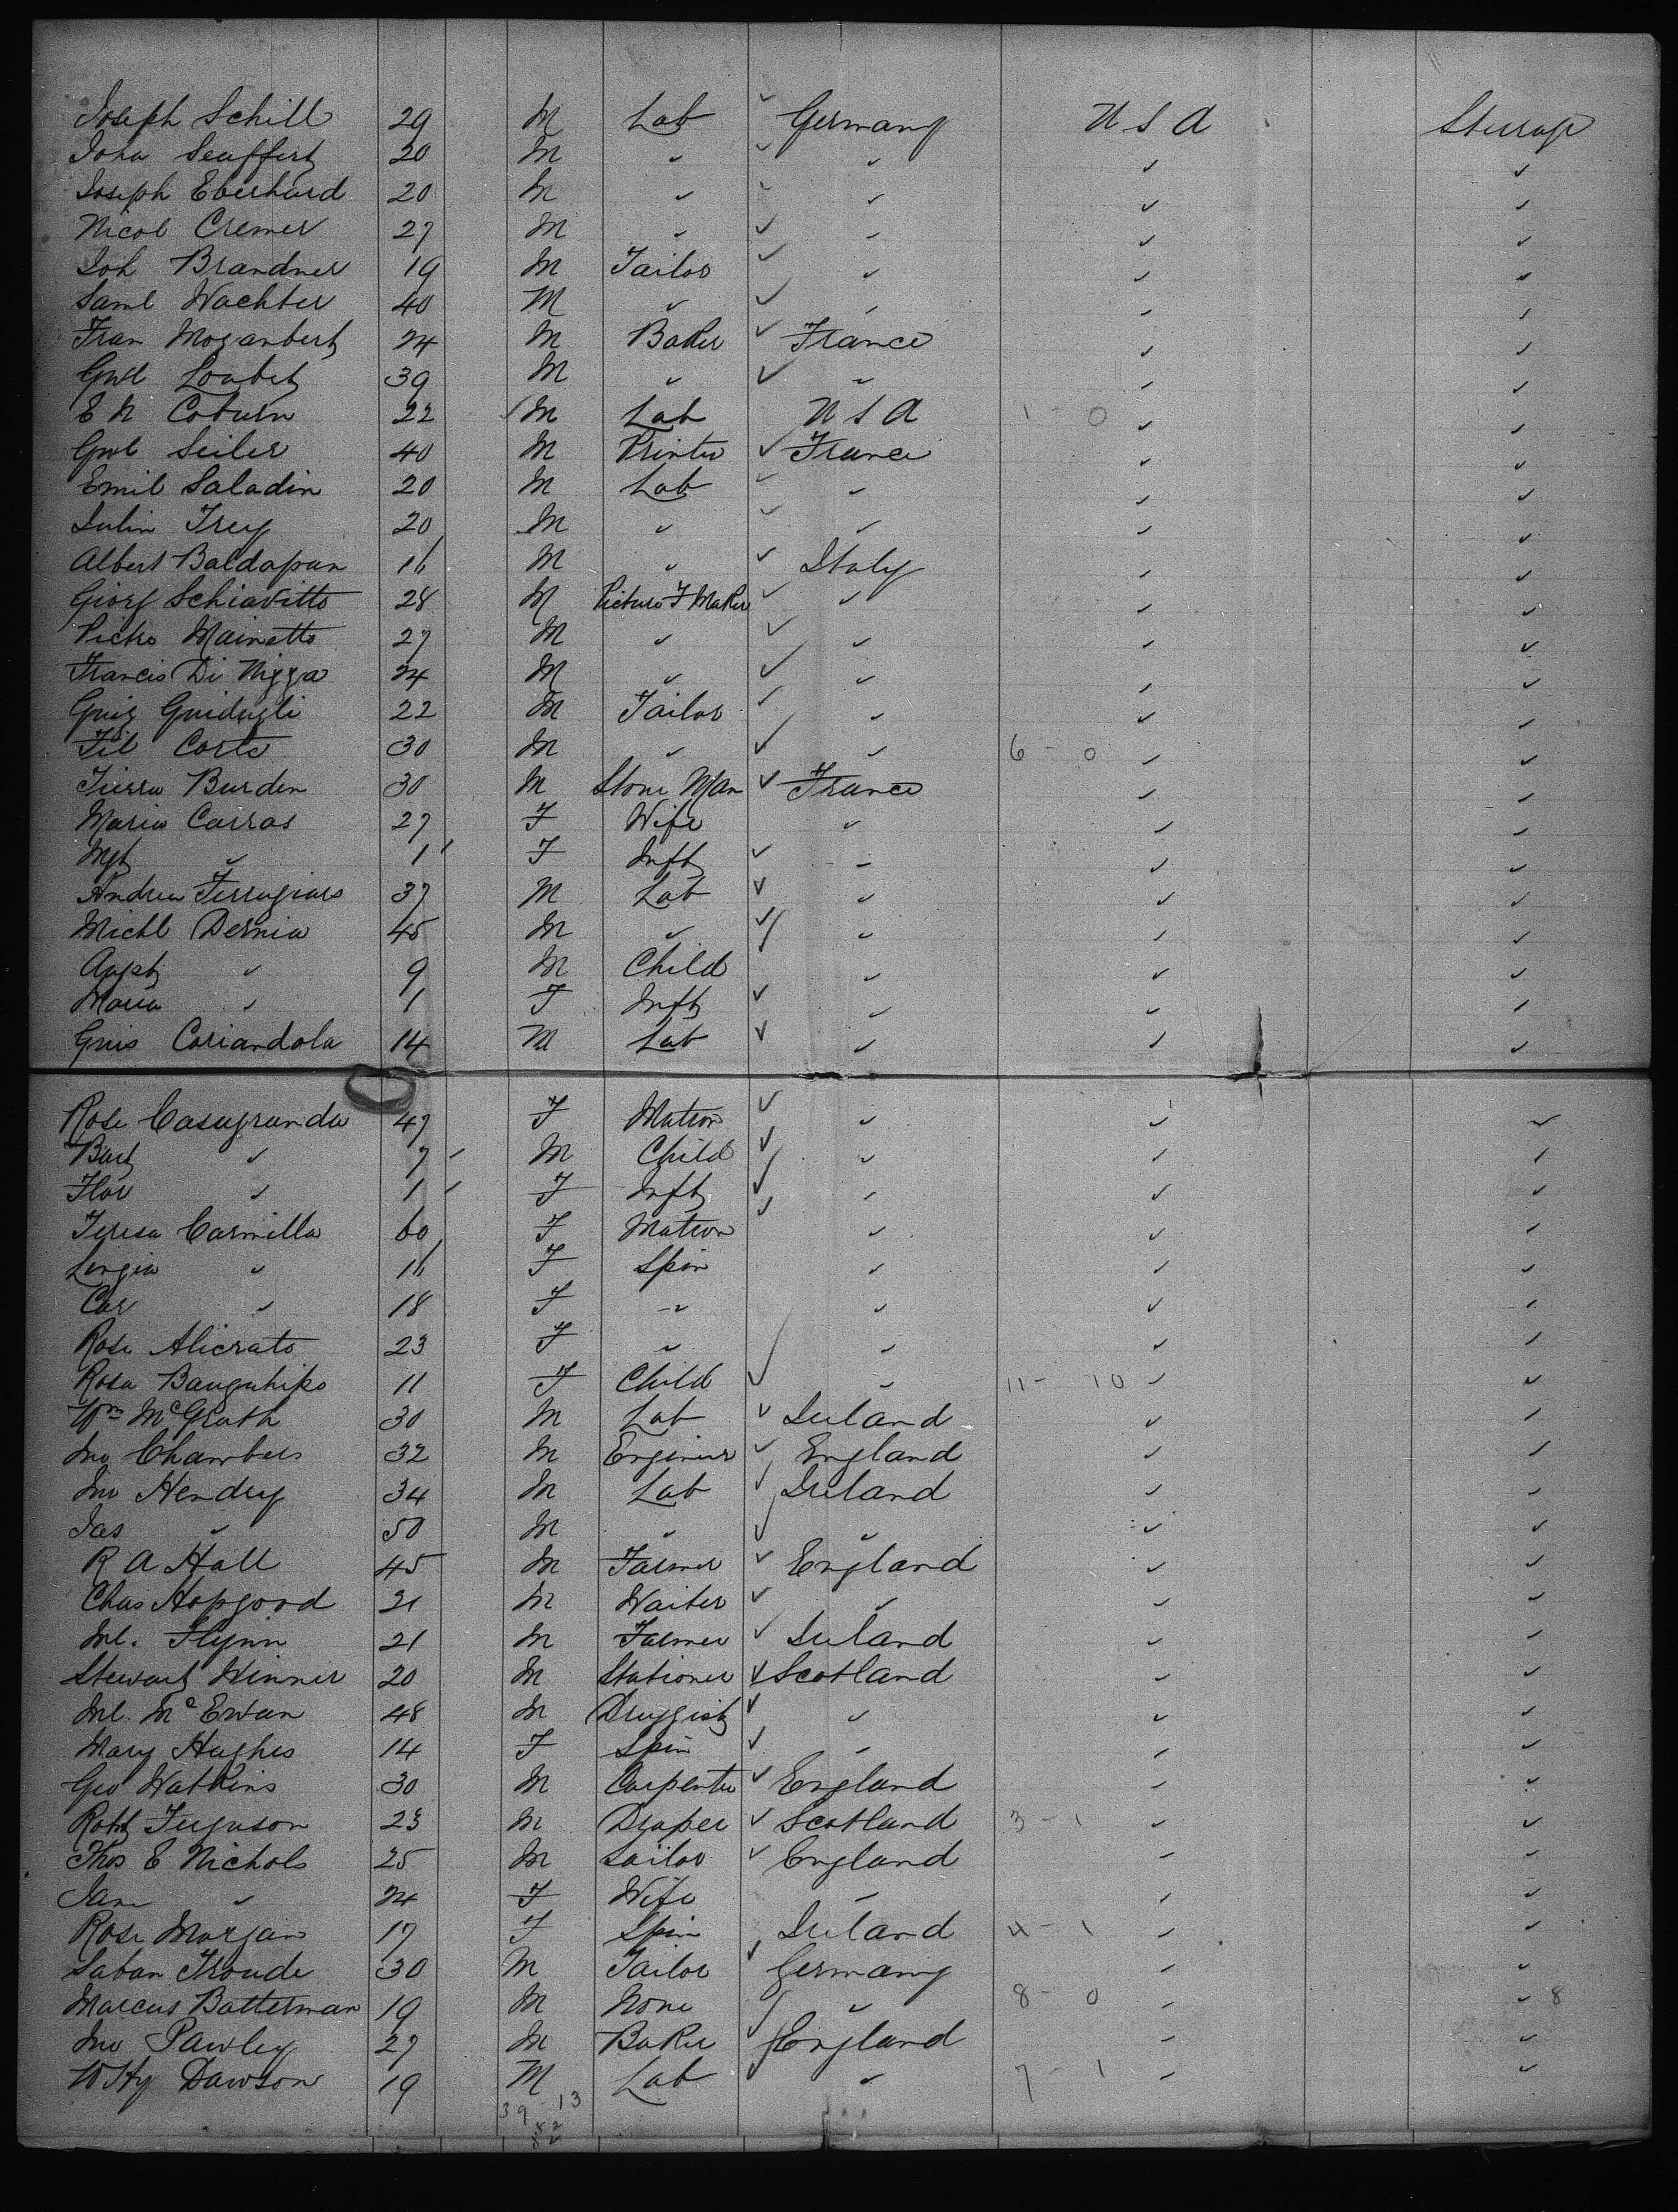 Joseph Schill 29 M Lab Germany U S A Steerage
John Seuffert 20 M " " " "
Joseph Eberhard 20 M " " " "
Nicol Cremer 27 M " " " "
Joh Brandner 19 M Tailor " " "
Saml Wachter 40 M " " " "
Fran Mozanbert 24 M Baker France " "
Gust Loubet 39 M " " " "
E N Coburn 22 M Lab U S A 1 - 0 " "
Seiler 40 M Printer France " "
Emil Saladin 20 M Lab " " "
Julin Frey 20 M " " " "
Albert Baldapan 16 M " Italy " "
Giorg Schiavitto 28 M Picture F Maker " " "
Pietro Mainetto 27 M " " " "
Francis Di Nigga 24 M " " " "
Guis Guidugli 22 M Tailor " " "
Fil Corto 30 M " " 6 - 0 " "
Pierre Burden 30 M Stone Man France " "
Maria Carras 27 F Wife " " "
Mgt " 1 F Inft " " "
Andrea Ferrugiaro 37 M Lab " " "
Michl Dernia 45 M " " " "
Augst " 9 M Child " " "
Maria " 1 F Inft " " "
Guis Coriandola 14 M Lab " " "
Rose Casagranda 47 F Matron " " "
Bart " 7 M Child " " "
Flor " 1 F Inft " " "
Teresa Carmilla 60 F Matron " " "
Luigia " 16 F Spin " " "
Car " 18 F " " " "
Rose Alicrato 23 F " " " "
Rosa 11 F Child " 11 - 10 " "
Wm McGrath 30 M Lab Ireland " "
Jno Chambers 32 M Engineer England " "
Jno Hendry 34 M Lab Ireland " "
Jas " 50 M " " " "
R A Hall 45 M Farmer England " "
Chas Hopgood 21 M Waiter " " "
Ml. Flynn 21 M Farmer Ireland " "
Stewart Winner 20 M Stationer Scotland " "
Ml. McEwan 48 M Druggist " " "
Mary Hughes 14 F Spin " " "
Geo Watkins 30 M Carpenter England " "
Robt Ferguson 23 M Draper Scotland 3 - 1 " "
Thos E Nichols 25 M Sailor England " "
Jane " 24 F Wife " " "
Rose Morgan 17 F Spin Ireland 4 - 1 " "
Laban Froude 30 M Tailor Germany " "
Marcus Batterman 19 M None " 8 - 0 " " 8
Jno Pawley 27 M Baker England " "
W Hy Dawson 19 M Lab " 7 - 1 " "
39 - 13
52